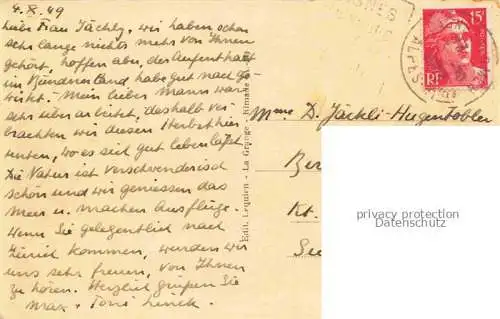 4.8.49
Liebe Frau Jäckly, wir haben schon
sehr lange nichts mehr von Ihnen
gehört, hoffen aber, der Aufenthalt
im Bündnerland habe gut nach ge-
wirkt. Mein lieber Mann war
sehr überarbeitet, deshalb ver-
brachten wir diesen Herbst hier
unten, wo es sich gut leben lässt.
Die Natur ist verschwenderisch
schön und wir geniessen das
Meer u. machen Ausflüge.
Wenn Sie gelegentlich nach
Zürich kommen, würden wir
uns sehr freuen, von Ihnen
zu hören. Herzlich grüßen Sie
Max + Toni
Edit. Lequien - La Grange
Mme D. Jäckli-Hugentobler
Ber
Kt.
Su
15F
RF
ALPES
privacy protection
Datenschutz